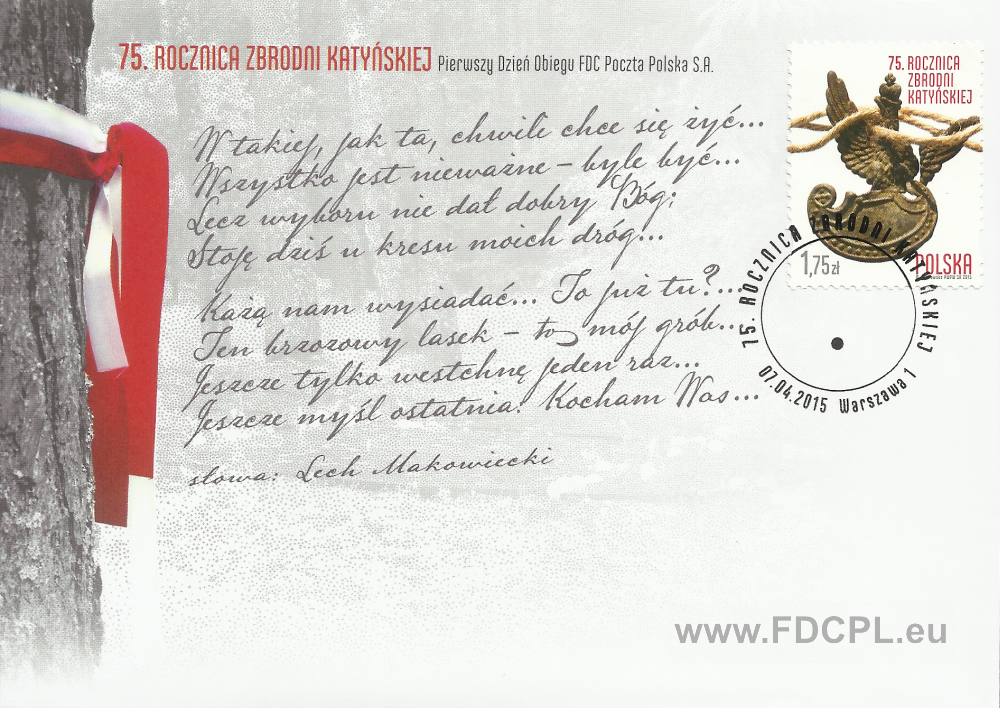 75. ROCZNICA ZBRODNI KATYŃSKIEJ Pierwszy Dzień Obiegu FDC Poczta Polska S.A.
75. ROCZNICA
ZBRODNI
KATYŃSKIEJ
W takiej, jak ta, chwili chce się żyć...
Wszystko jest nieważne – byle być...
Lecz wyboru nie dał dobry Bóg;
Stoję dziś u kresu moich dróg...
1,75zł
POLSKA
75. ROCZNICA ZBRODNI KATYŃSKIEJ
07.04.2015 Warszawa 1
Każą nam wysiadać... To już tu?...
Ten brzozowy lasek – to mój grób...
Jeszcze tylko westchnę jeden raz...
Jeszcze myśl ostatnia: Kocham Was...
słowa: Lech Makowiecki
www.FDCPL.eu